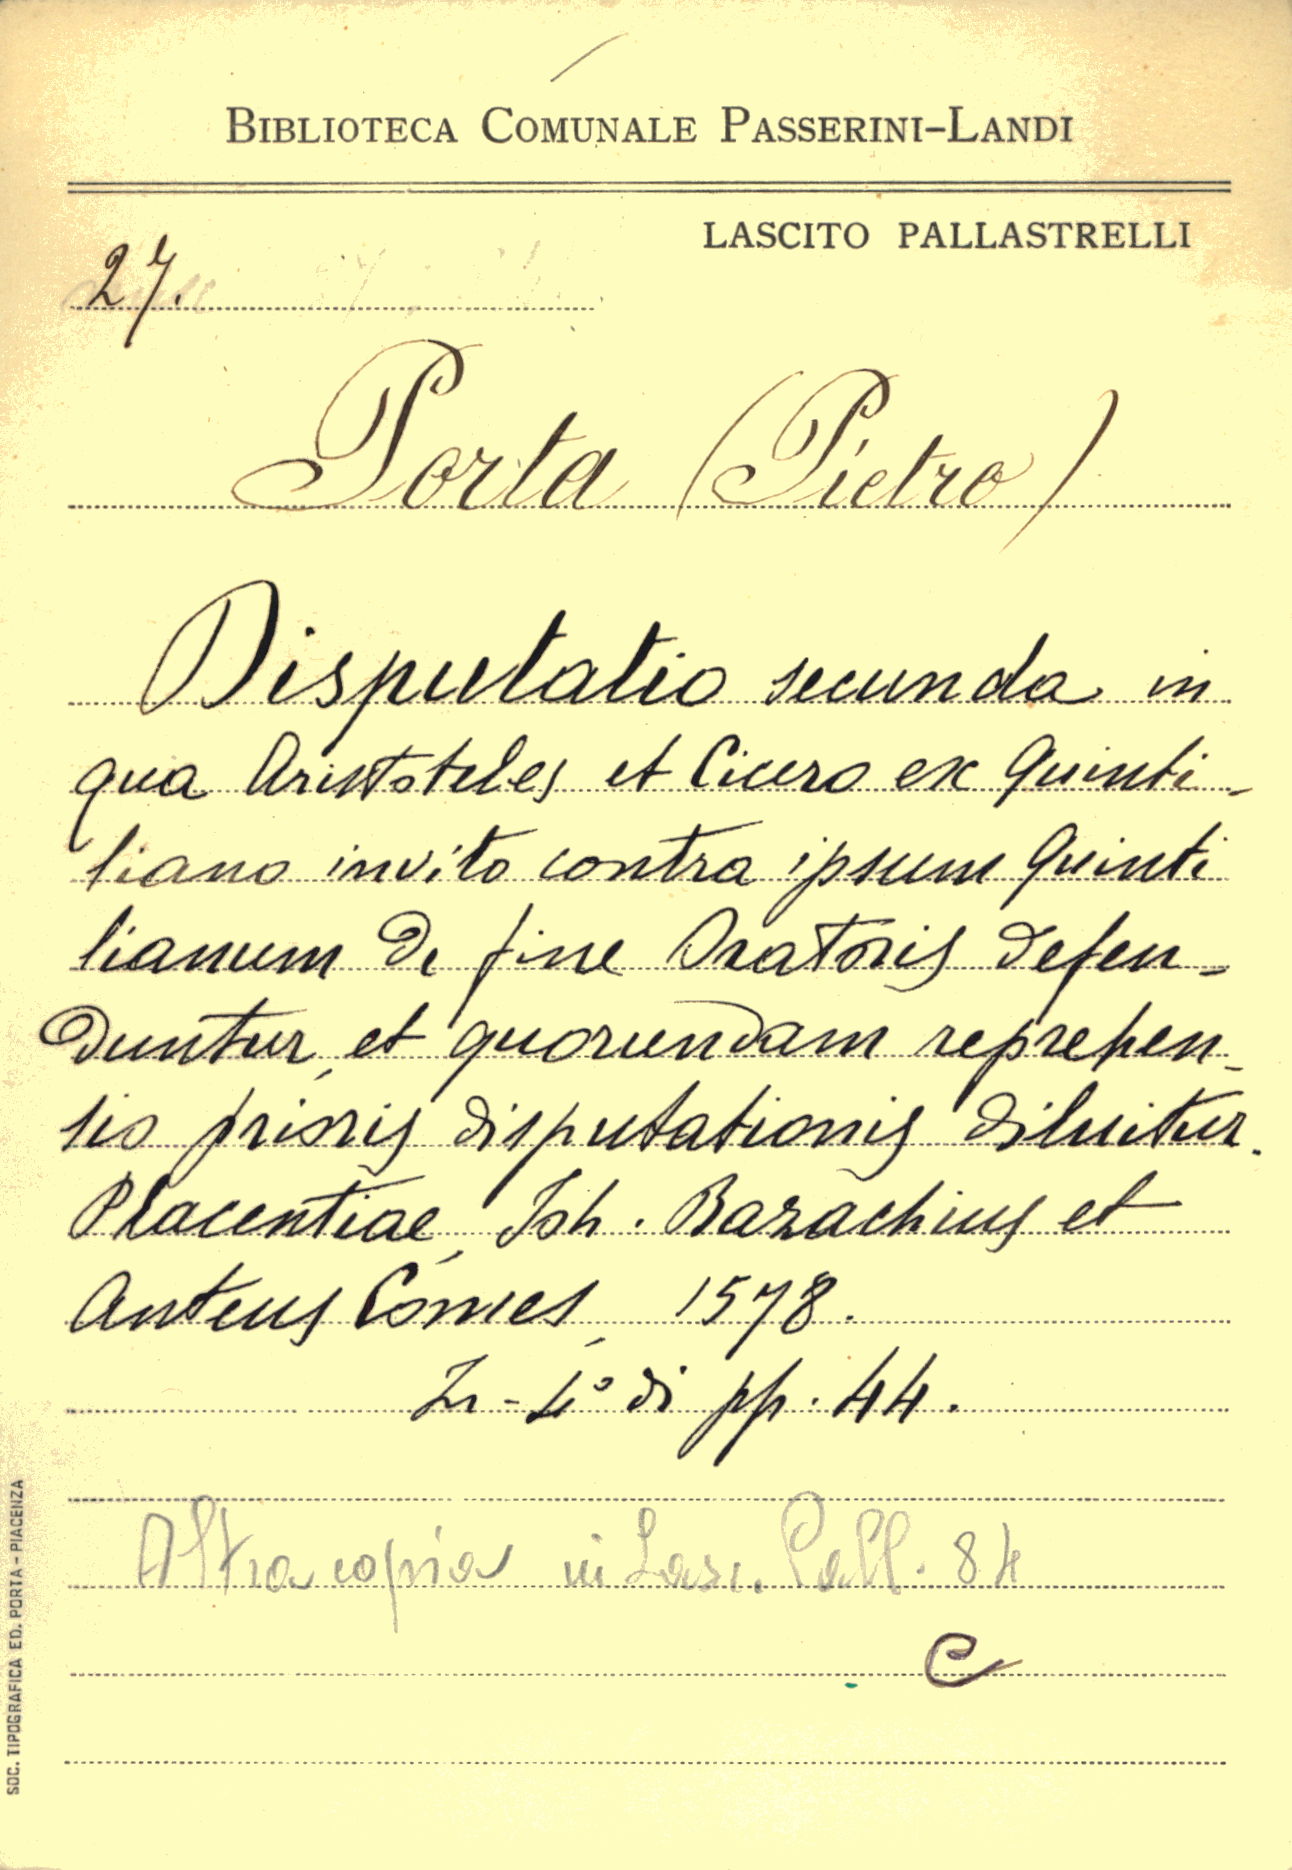 BIBLIOTECA COMUNALE PASSERINI-LANDI
LASCITO PALLASTRELLI
27.
Porta (Pietro)
Disputatio secunda in
qua Aristoteles et Cicero ex Quinti-
liano invito contra ipsum Quinti
lianum de fine Oratoris defen-
duntur, et quorundam reprehen-
sio prioris disputationis diluitur.
Placentiae, Joh. Bazachius et
Anteus Comes, 1578.
In-4° di pp. 44.
Altra copia in Lasc. Pall. 84
C
SOC. TIPOGRAFICA ED. PORTA - PIACENZA